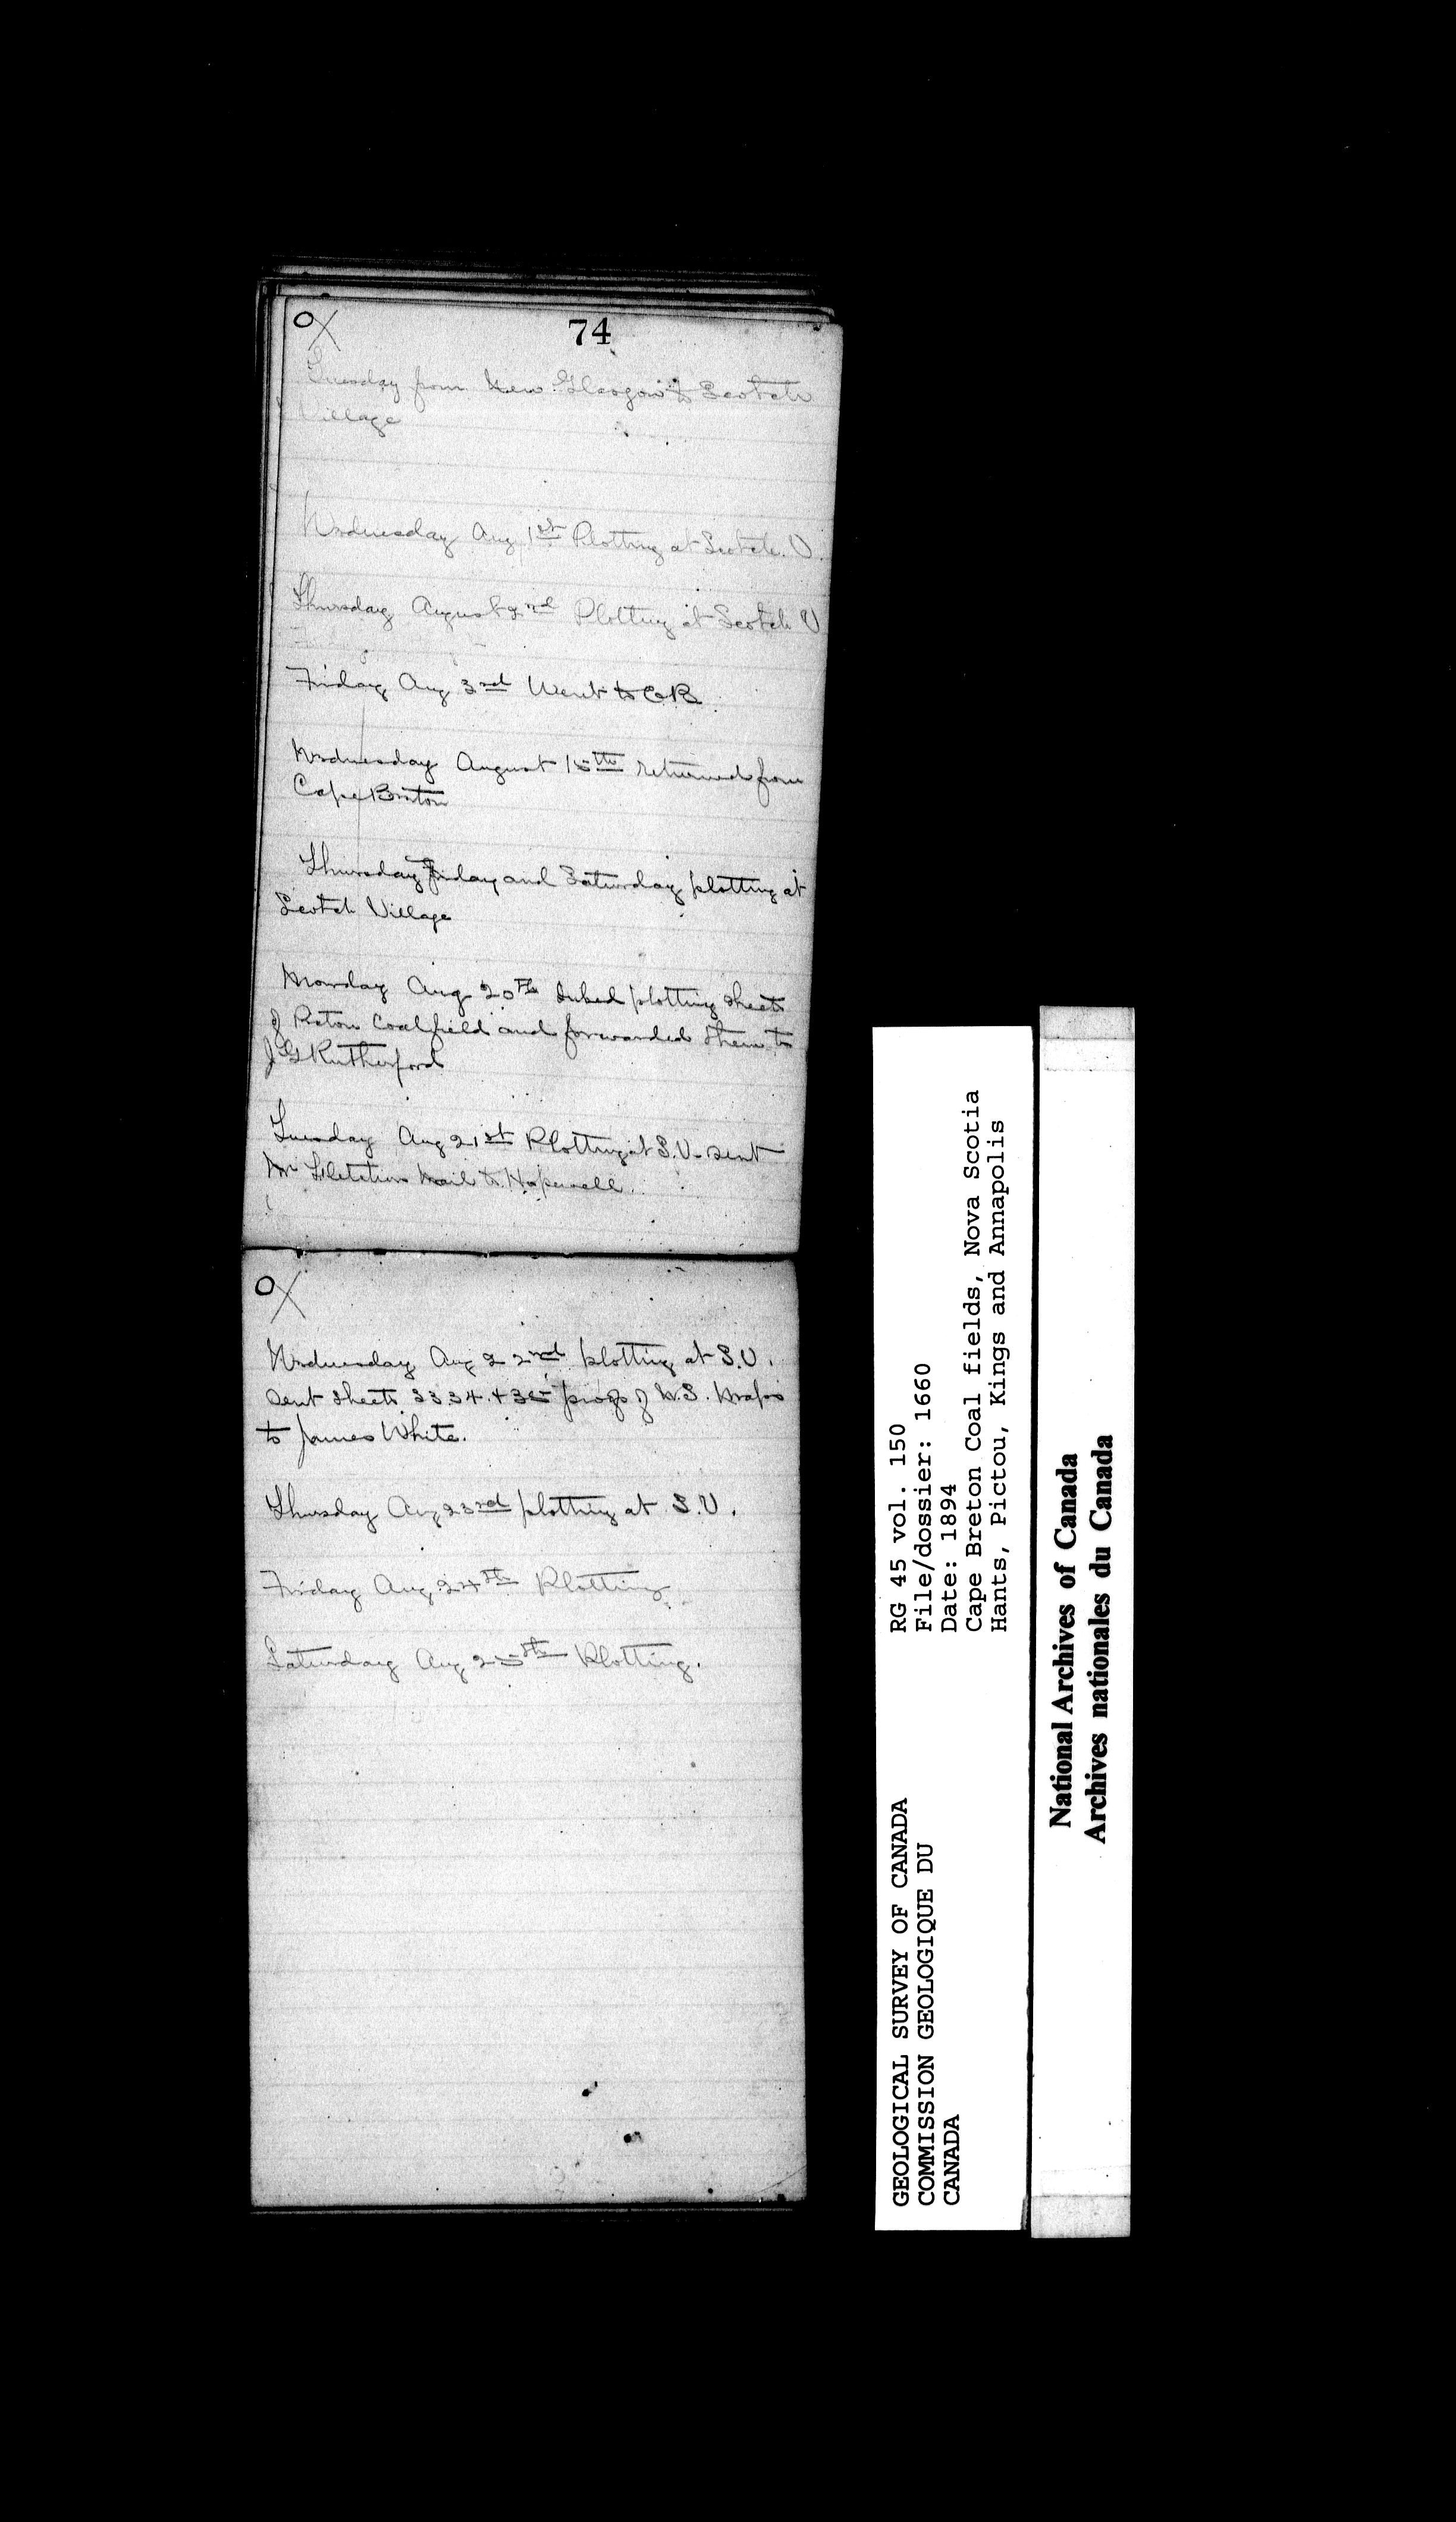 74
Tuesday from New Glasgow to Scotch
Village
Wednesday Aug 1st Plotting at Scotch. V.
Thursday August 2nd Plotting at Scotch V
Friday Aug 3rd Went to C.B.
Wednesday August 15th returned from
Cape Breton
Thursday Friday and Saturday plotting at
Scotch Village
Monday Aug 20th Inked plotting sheets
of Pictou Coalfield and forwarded them to
J G Rutherford
Tuesday Aug 21st Plotting at S.V. sent
Mr Fletchers Mail to Hopewell.
Wednesday Aug 22nd plotting at S.V.
Sent sheets 33.34.+35 of N.S. Maps
to James White.
Thursday Aug 23rd plotting at S.V.
Friday Aug 24th Plotting
Saturday Aug 25th Plotting.
GEOLOGICAL SURVEY OF CANADA
COMMISSION GEOLOGIQUE DU
CANADA
RG 45 vol. 150
File/dossier: 1660
Date: 1894
Cape Breton Coal fields, Nova Scotia
Hants, Pictou, Kings and Annapolis
National Archives of Canada
Archives nationales du Canada